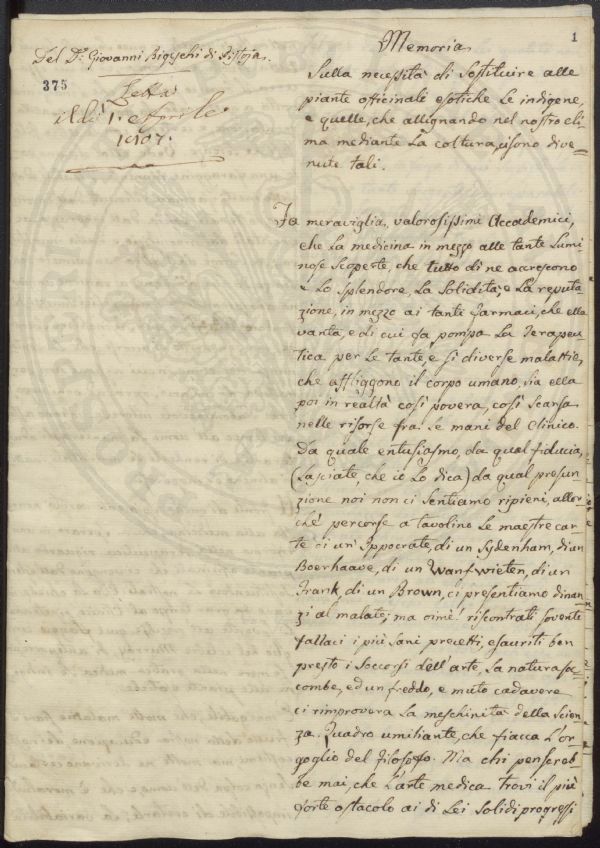 Memoria
1
Del D.r Giovanni Bigeschi di Pistoja.
375
Letta
il dì 1. Aprile
1807.
Sulla necessità di sostituire alle
piante officinali esotiche le indigene,
e quelle, che allignando nel nostro cli=
ma mediante la coltura, si sono dive=
nute tali.
Fa meraviglia, valorosissimi Accademici,
che la medicina in mezzo alle tante lumi=
nose scoperte, che tutto dì ne accrescono
lo splendore, la solidità, e la reputa=
zione, in mezzo ai tanti farmaci, che ella
vanta, e di cui fa pompa la Terapeu=
tica per le tante, e sì diverse malattie,
che affliggono il corpo umano, sia ella
poi in realtà così povera, così scarsa
nelle risorse fra le mani del Clinico.
Da quale entusiasmo, da qual fiducia,
(lasciate, che io lo dica) da qual presun=
zione noi non ci sentiamo ripieni, allor=
chè percorse a tavolino le maestre car=
te di un' Ippocrate, di un Sydenham, di un
Boerhaave, di un Wanswieten, di un
Frank, di un Brown, ci presentiamo dinan=
zi al malato; ma oimè! riscontrati sovente
fallaci i più sani precetti, esauriti ben
presto i soccorsi dell'arte, la natura soc=
combe, ed un freddo, e muto cadavere
ci rimprovera la meschinità della scien=
za. Quadro umiliante, che fiacca l'or=
goglio del Filosofo. Ma chi penserob=
be mai, che l'arte medica trovi il più
forte ostacolo ai di lei solidi progressi